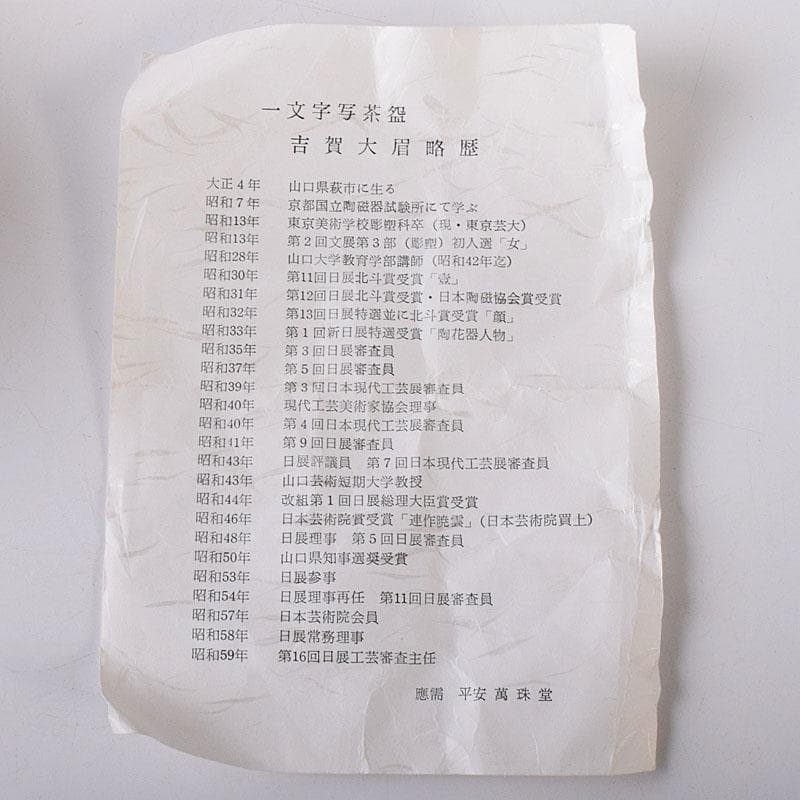 一文字写茶盌
吉賀大眉略歴
大正4年 山口県萩市に生る
昭和7年 京都国立陶磁器試験所にて学ぶ
昭和13年 東京美術学校彫塑科卒（現・東京芸大）
昭和13年 第2回文展第3部（彫塑）初入選「女」
昭和28年 山口大学教育学部講師（昭和42年迄）
昭和30年 第11回日展北斗賞受賞「壺」
昭和31年 第12回日展北斗賞受賞・日本陶磁協会賞受賞
昭和32年 第13回日展特選並に北斗賞受賞「顔」
昭和33年 第1回新日展特選受賞「陶花器人物」
昭和35年 第3回日展審査員
昭和37年 第5回日展審査員
昭和39年 第3回日本現代工芸展審査員
昭和40年 現代工芸美術家協会理事
昭和40年 第4回日本現代工芸展審査員
昭和41年 第9回日展審査員
昭和43年 日展評議員 第7回日本現代工芸展審査員
昭和43年 山口芸術短期大学教授
昭和44年 改組第1回日展総理大臣賞受賞
昭和46年 日本芸術院賞受賞「連作暁雲」（日本芸術院買上）
昭和48年 日展理事 第5回日展審査員
昭和50年 山口県知事選奨受賞
昭和53年 日展参事
昭和54年 日展理事再任 第11回日展審査員
昭和57年 日本芸術院会員
昭和58年 日展常務理事
昭和59年 第16回日展工芸審査主任
應需 平安萬珠堂